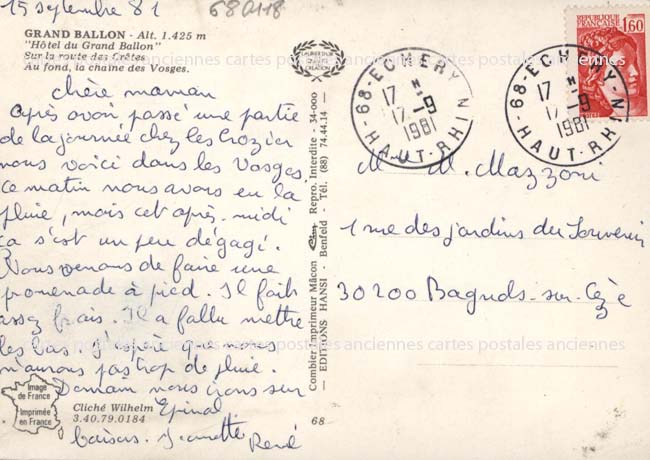 15 septembre 81
680118
GRAND BALLON - Alt. 1.425 m
"Hôtel du Grand Ballon"
Sur la route des Crêtes
Au fond, la chaîne des Vosges.
chère maman
Après avoir passé une partie
de la journée chez les Crozier
nous voici dans les Vosges.
ce matin nous avons eu la
pluie, mais cet après-midi
ça s'est un peu dégagé.
Nous venons de faire une
promenade à pied. Il fait
assez frais. Il a fallu mettre
les bas. J'espère que nous
n'aurons pas trop de pluie.
Demain nous irons sur
Epinal.
baisers. Jeannette René
Image
de France
Imprimée
en France
Cliché Wilhelm
3.40.79.0184
68
Combier Imprimeur Mâcon Repro. Interdite - 34-000
— EDITIONS HANSI - Benfeld - Tél. (88) 74.44.14 —
68-ECHERY
17 H
17 -9
1981
HAUT-RHIN
68-ECHERY
17 H
17 -9
1981
HAUT-RHIN
REPUBLIQUE
FRANÇAISE
1,60
M. M. Mazzoni
1 rue des jardins du Souvenir
30200 Bagnols-sur-Cèze
cartes postales anciennes cartes postales anciennes cartes postales anciennes